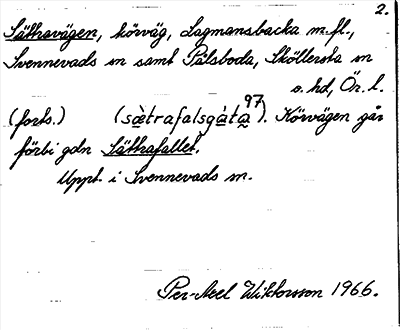 2.
Sättravägen, körväg, Lagmansbacka m.fl.,
Svennevads sn samt Pålsboda, Sköllersta sn
o. hd, Ör. l.
(forts.) (sätrafalsgàta 97). Körvägen går
förbi gdn Sättrafallet.
Uppt. i Svennevads sn.
Per-Axel Wiktorsson 1966.